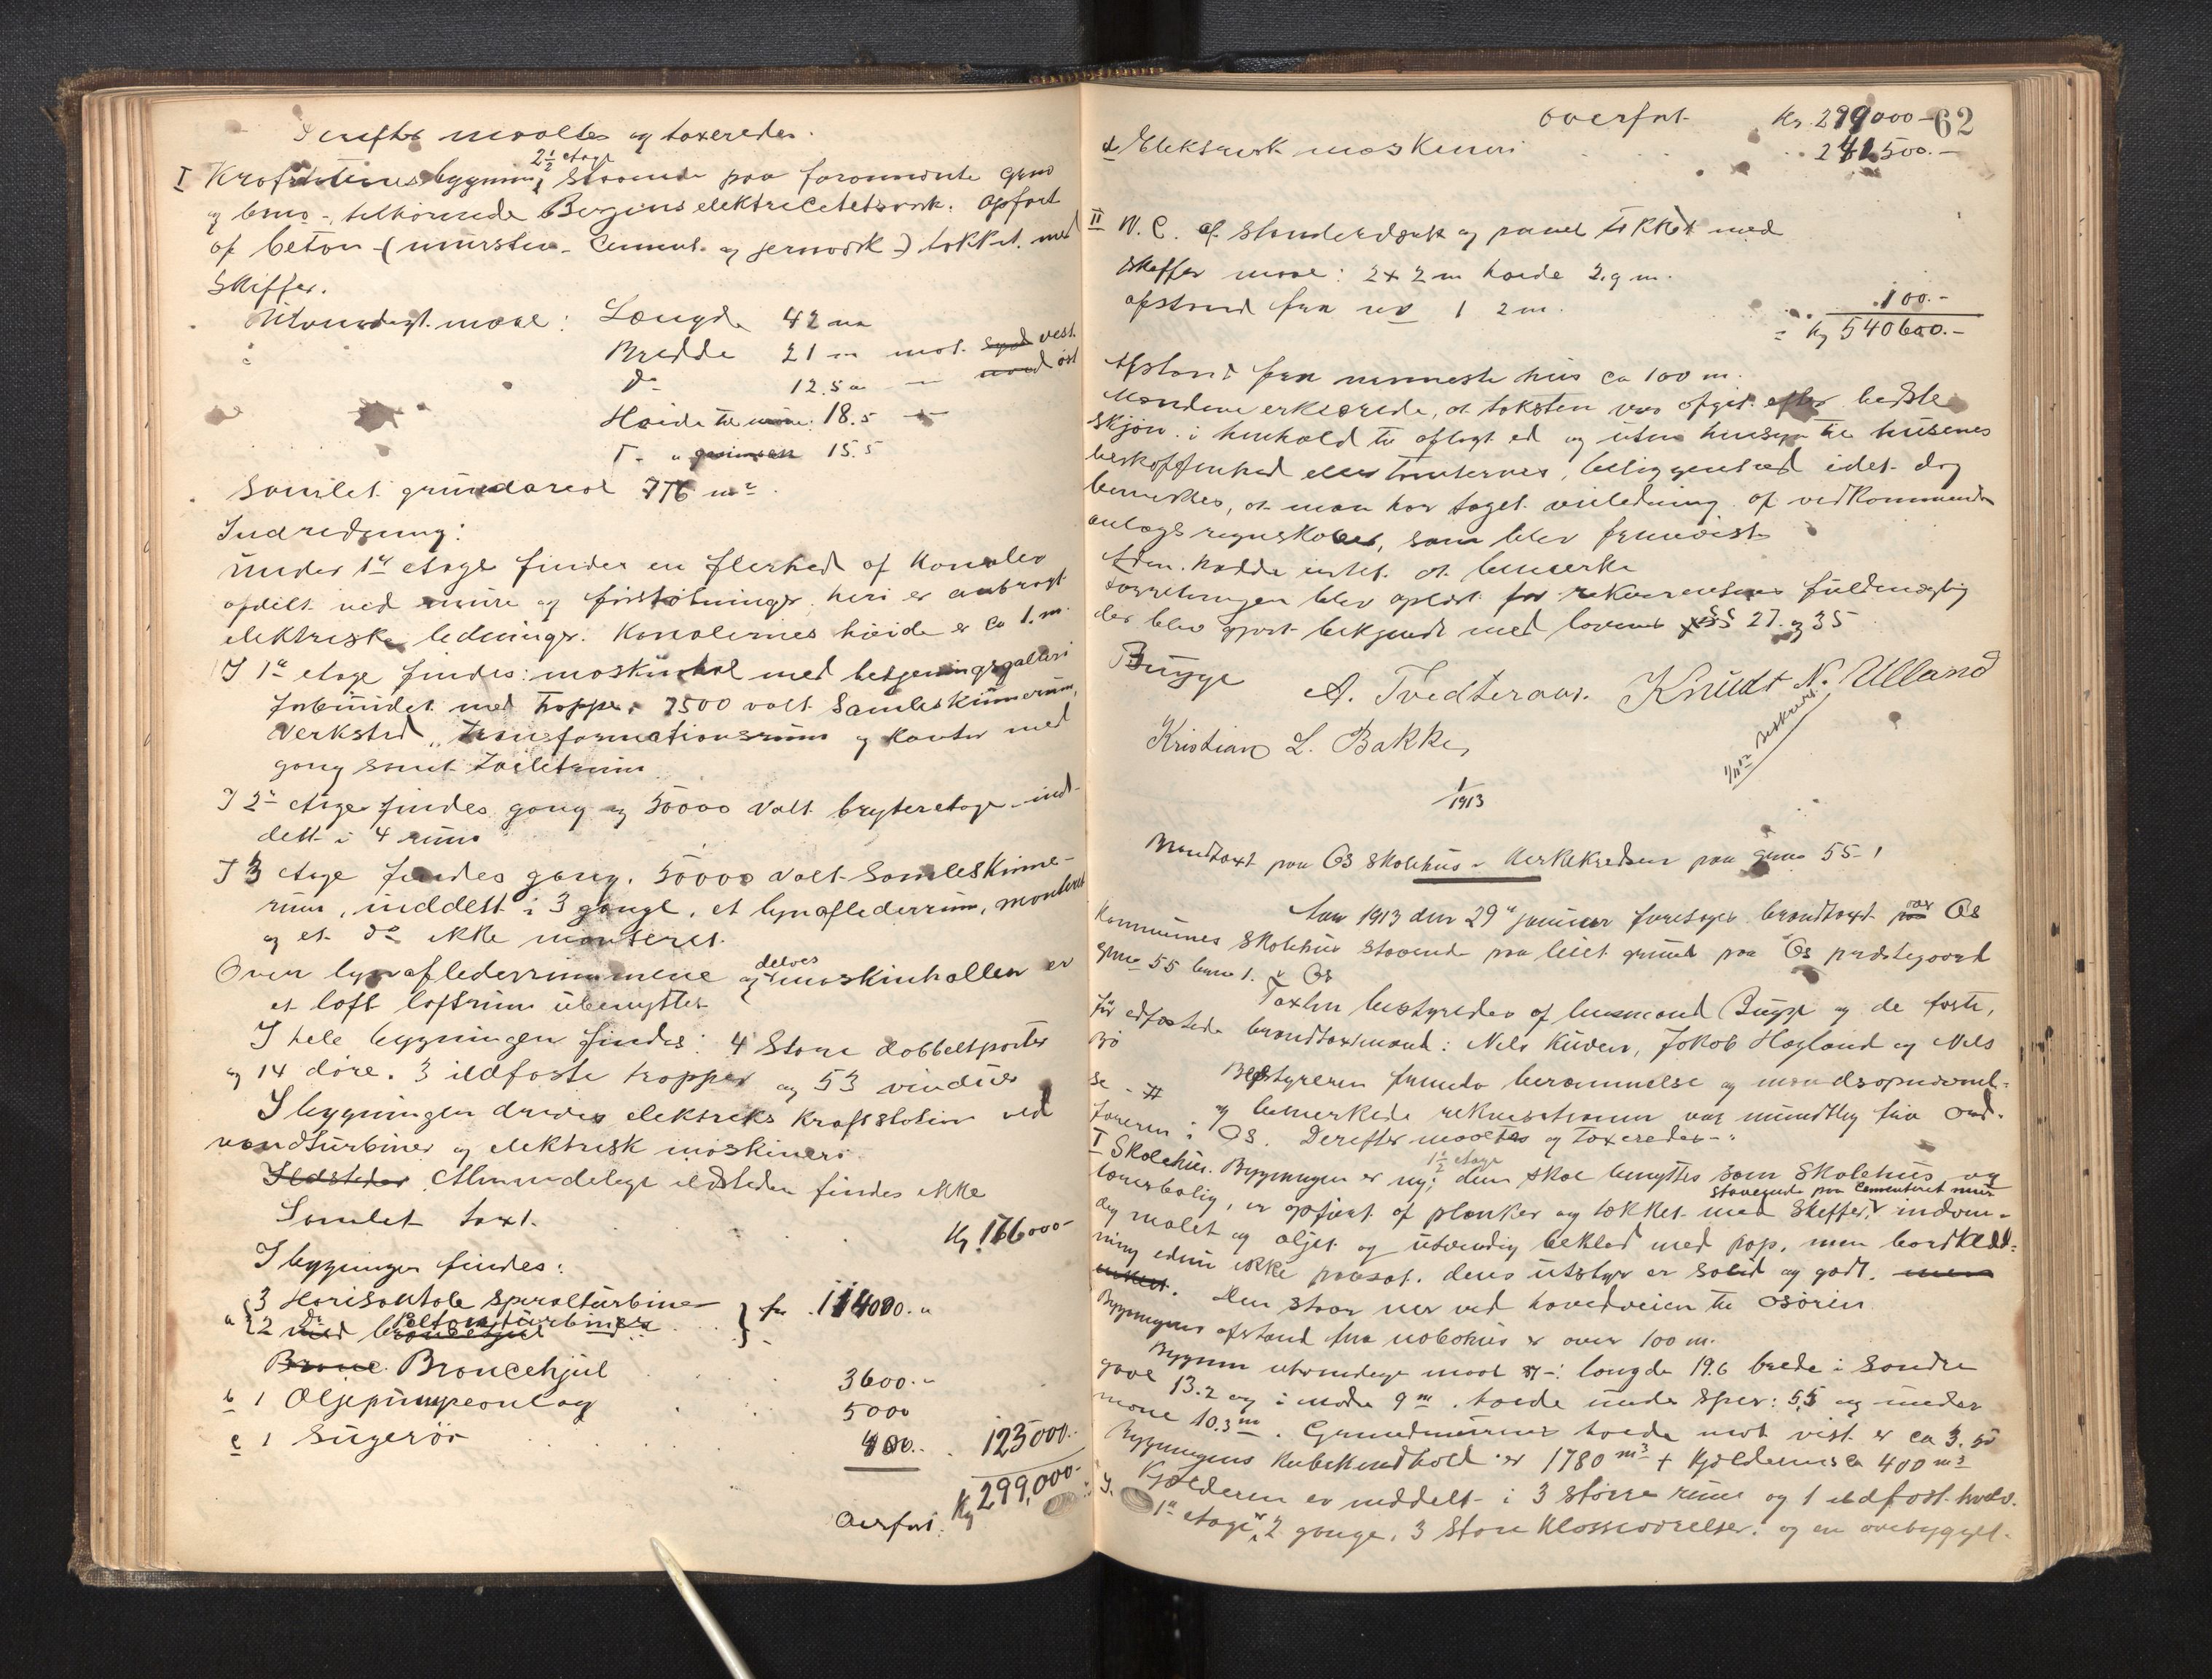 Derefter maaltes og taxeredes.
I Kraftstationsbygning 2½ etage staaende paa forannævnte gno
og bno - tilhørende Bergens elektricitetsverk. Opført
af beton - (mursten - cement og jernverk -) tækket med
Skiffer.
Utvendigt maal: Længde 42 m
" Bredde 21 m mot syd vest.
Do 12.5 m — nord øst
Høide til møne: 18.5 —
Do " gesimsen 15.5
Samlet grundareal 776 m²
Indredning:
Under 1ste etage findes en flerhed af Kanaler
opdelt ved mure og forstøtninger heri er anbragt
elektriske ledninger. Kanalernes høide er ca 1. m.
I 1ste etage findes: maskinhal med betjeningsgalleri
forbundet med trapper, 7500 volt samleskinnerum,
Verksted, transformationsrum og kontor med
gang samt toiletrum
I 2den etage findes gang og 50000 Volt bryteretage - ind-
delt i 4 rum
I 3 etage findes gang, 50000 Volt Samleskinne-
rum, inddelt i 3 gange, et lynaflederrum, monteret
og et do ikke monteret.
Over lynaflederrummene og delvis maskinhallen er
et loft loftrum ubenyttet
I hele bygningen findes: 4 store dobbeltporter
og 14 døre. 3 ildfaste trapper og 53 vinduer
I bygningen drives elektrisk kraftstation ved
vandturbiner og elektrisk maskineri.
Ildsteder Almindelige ildsteder findes ikke
Samlet taxt. Kr 176000-
I bygningen findes:
a 3 Horisontale spiralturbiner
2 Do Peltonturbiner } for 114000.-
med broncehjul
Bronce Broncehjul 3600.-
b 1 Oljepumpeanlæg 5000
c 1 Sugerør 400.- 123000.-
Overført. Kr 299,000.-
62
Overført Kr. 299000-
d Elektrisk maskineri 241500.-
II W.C. af Standerværk og panel tækket med
skiffer maal: 2 x 2 m høide 2.9 m.
afstand fra no 1 2 m. 100.-
= Kr 540600.-
Afstand fra nærmeste hus ca 100 m.
Mændene erklærede, at taksten var afgit efter bedste
skjøn i henhold til aflagt ed og uten hensyn til husenes
beskaffenhed eller tomternes beliggenhed idet dog
bemerkes, at man har taget veiledning af vedkommende
anlægs regnskaber, som blev fremvist
Iøvrigt hadde intet at bemerke
Forretningen blev oplæst for rekvirentens fuldmægtig
der blev gjort bekjendt med lovens §§ 27. og 35
Bugge A. Tvedteraas. Knudt N. Ulland
Kristian L. Bakke,
1/1913
Brandtaxt paa Os Skolehus - Kirkekredsen paa gno 55-1
Aar 1913 den 29de januar foretoges brandtaxt over Os
Kommunes skolehus staaende paa leiet grund paa Os prestegaard
gno 55 bno 1. i Os
Taxten bestyredes af lensmand Bugge og de faste,
før edfæstede brandtaxtmænd: Nils Kuven, Jakob Hegland og Nils
Bø
Bestyreren fremla berammelse og mandsopnævnel-
se - # og bemerkede rekvisitionen var mundtlig fra Ord-
føreren i Os. Derefter maaltes og taxeredes -:
I Skolehus. Bygningen er ny; 1½ etage den skal benyttes som skolehus og
lærerbolig, er opført af planker og tækket med skiffer, staaende paa cementeret mur indven-
dig malet og oljet og utvendig beklæd med pap, men bordklæd-
ning endnu ikke paasat. Dens utstyr er solid og godt.
Den staar nær ved hovedveien til Osøren.
Bygningens afstand fra nabohus er over 100 m.
Bygningens utvendige maal er: længde 19.6 brede i søndre
gavl 13.2 og i nordre 9 m. høide under sper: 5,5 og under
møne 10.3 m. Grundmurens høide mot vest er ca 3.50
Bygningens kubikindhold er 1780 m³ + kjelderens ca 400 m³
Kjelderen er inddelt i 3 større rum og 1 ildfast hvælv.
I 1ste etage er 2 gange, 3 store klasseværelser, og en overbygget